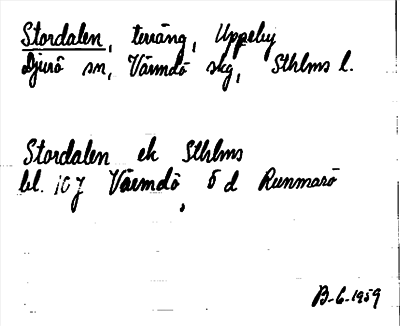 Stordalen, terräng, Uppeby
Djurö sn, Värmdö skg, Sthlms l.
Stordalen ek Sthlms
bl. 107 Värmdö, ö d Runmarö
B-6-1959